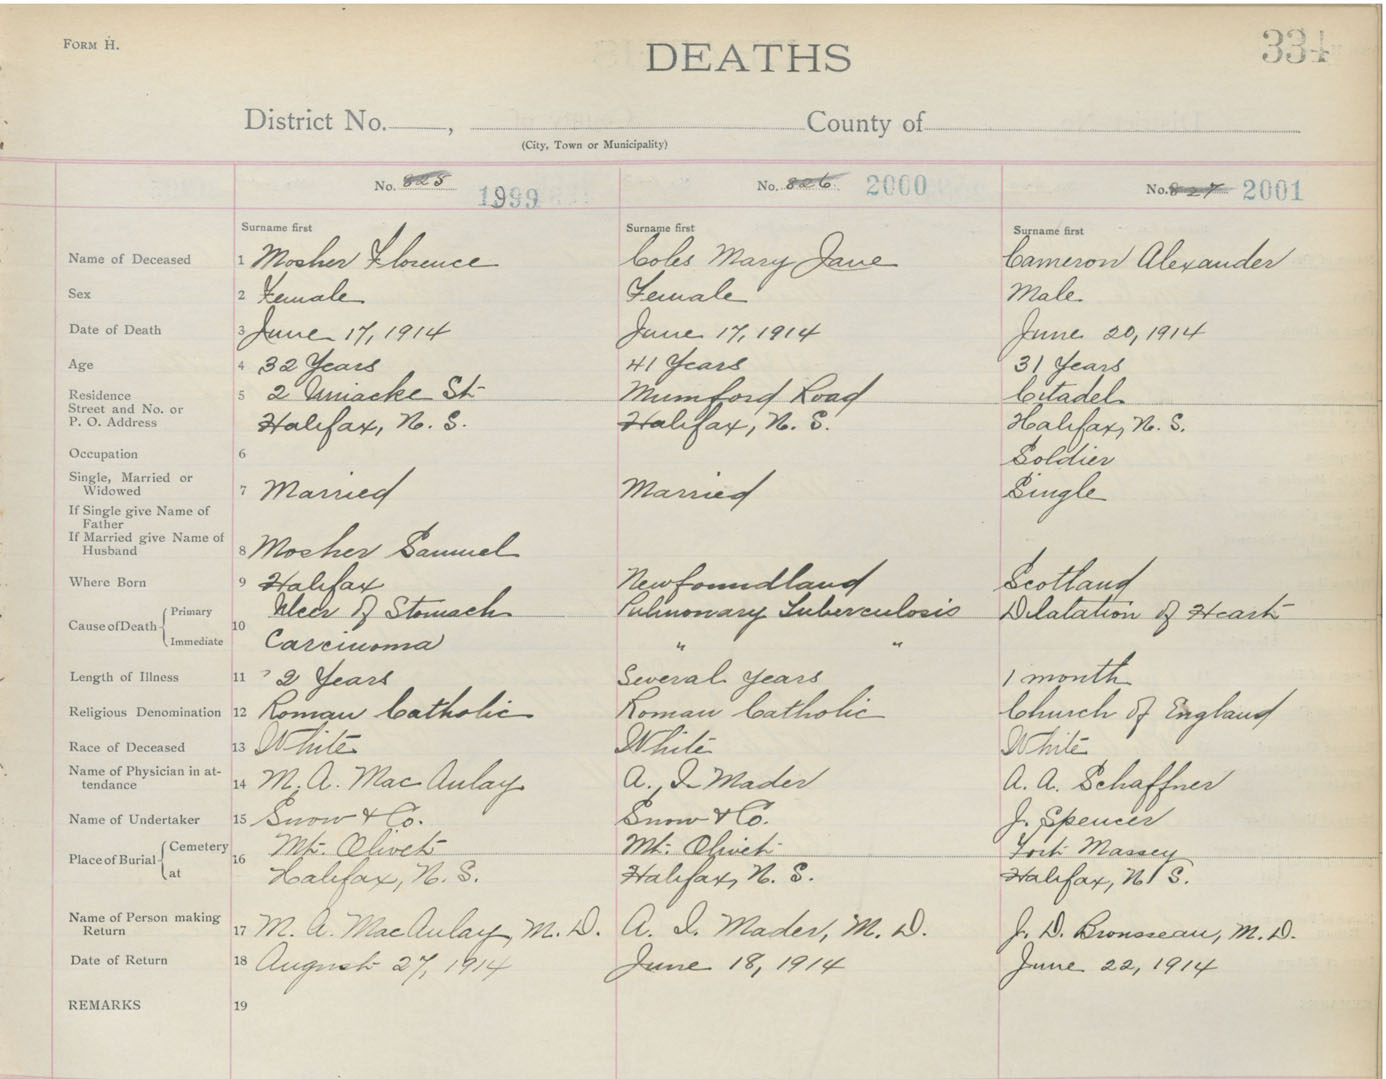 Form H.
DEATHS
334
District No. , County of
(City, Town or Municipality)
No. 825 1999 No. 826 2000 No. 827 2001
Surname first Surname first Surname first
Name of Deceased 1 Mosher Florence Coles Mary Jane Cameron Alexander
Sex 2 Female Female Male
Date of Death 3 June 17, 1914 June 17, 1914 June 20, 1914
Age 4 32 Years 41 Years 31 Years
Residence 5 2 Uniacke St Mumford Road Citadel
Street and No. or
P. O. Address Halifax, N. S. Halifax, N. S. Halifax, N. S.
Occupation 6 Soldier
Single, Married or
Widowed 7 Married Married Single
If Single give Name of
Father
If Married give Name of
Husband 8 Mosher Samuel
Where Born 9 Halifax Newfoundland Scotland
Cause of Death Primary 10 Ulcer of Stomach Pulmonary Tuberculosis Dilatation of Heart
Immediate Carcinoma " "
Length of Illness 11 2 Years Several years 1 month
Religious Denomination 12 Roman Catholic Roman Catholic Church of England
Race of Deceased 13 White White White
Name of Physician in at-
tendance 14 M. A. MacAulay A. I. Mader A. A. Schaffner
Name of Undertaker 15 Snow & Co. Snow & Co. J. Spencer
Place of Burial Cemetery 16 Mt. Olivet Mt. Olivet Fort Massey
at Halifax, N. S. Halifax, N. S. Halifax, N. S.
Name of Person making
Return 17 M. A. MacAulay, M. D. A. I. Mader, M. D. J. D. Brousseau, M. D.
Date of Return 18 August 27, 1914 June 18, 1914 June 22, 1914
REMARKS 19